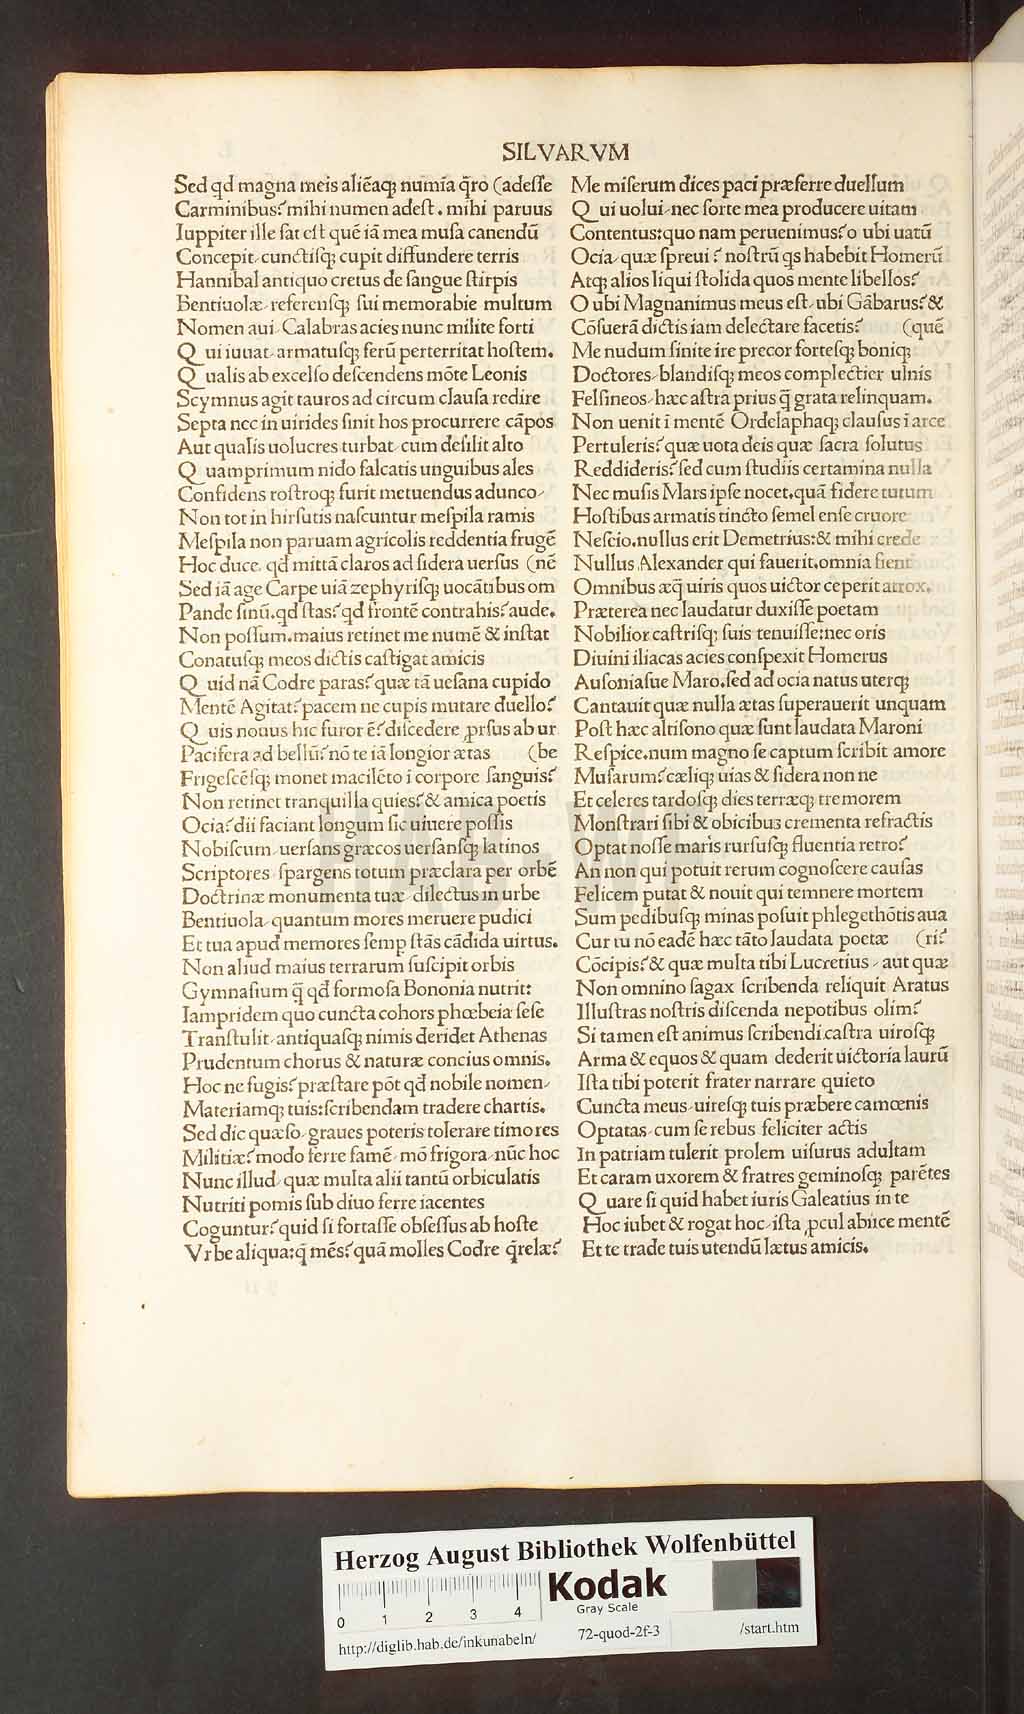 SILVARVM
Sed qd magna meis aliẽaq; numĩa q̃ro (adesse
Carminibus? mihi numen adest. mihi paruus
Iuppiter ille sat est quẽ iã mea musa canendũ
Concepit, cunctisq; cupit diffundere terris
Hannibal antiquo cretus de sangue stirpis
Bentiuolæ, referensq; sui memorabie multum
Nomen aui, Calabras acies nunc milite forti
Qui iuuat, armatusq; ferũ perterritat hostem.
Qualis ab excelso descendens mõte Leonis
Scymnus agit tauros ad circum clausa redire
Septa nec in uirides sinit hos procurrere cãpos
Aut qualis uolucres turbat, cum desilit alto
Quamprimum nido falcatis unguibus ales
Confidens rostroq; furit metuendus adunco,
Non tot in hirsutis nascuntur mespila ramis
Mespila non paruam agricolis reddentia frugẽ
Hoc duce. qd mittã claros ad sidera uersus (nẽ
Sed iã age Carpe uiã zephyrisq; uocãtibus om
Pande sinũ. qd stas? qd frontẽ contrahis? aude.
Non possum. maius retinet me numẽ & instat
Conatusq; meos dictis castigat amicis
Quid nã Codre paras? quæ tã uesana cupido
Mentẽ Agitat? pacem ne cupis mutare duello?
Quis nouus hic furor ẽ? discedere ꝓrsus ab ur
Pacifera ad bellũ? nõ te iã longior ætas (be
Frigescẽsq; monet macilẽto ĩ corpore sanguis?
Non retinet tranquilla quies? & amica poetis
Ocia? dii faciant longum sic uiuere possis
Nobiscum, uersans græcos uersansq; latinos
Scriptores, spargens totum præclara per orbẽ
Doctrinæ monumenta tuæ, dilectus in urbe
Bentiuola, quantum mores meruere pudici
Et tua apud memores semp stãs cãdida uirtus.
Non aliud maius terrarum suscipit orbis
Gymnasium q̃ qd formosa Bononia nutrit:
Iampridem quo cuncta cohors phœbeia sese
Transtulit, antiquasq; nimis deridet Athenas
Prudentum chorus & naturæ concius omnis.
Hoc ne fugis? præstare põt qd nobile nomen,
Materiamq; tuis: scribendam tradere chartis.
Sed dic quæso, graues poteris tolerare timores
Militiæ? modo ferre famẽ, mõ frigora, nũc hoc
Nunc illud, quæ multa alii tantũ orbiculatis
Nutriti pomis sub diuo ferre iacentes
Coguntur? quid si fortasse obsessus ab hoste
Vrbe aliqua: q̃ mẽs? quã molles Codre q̃relæ?
Me miserum dices paci præferre duellum
Qui uolui, nec sorte mea producere uitam
Contentus: quo nam peruenimus? o ubi uatũ
Ocia, quæ spreui? nostrũ qs habebit Homerũ
Atq; alios liqui stolida quos mente libellos?
O ubi Magnanimus meus est, ubi Gãbarus? &
Cõsuerã dictis iam delectare facetis? (quẽ
Me nudum sinite ire precor fortesq; boniq;
Doctores, blandisq; meos complectier ulnis
Felsineos, hæc astra prius q̃ grata relinquam.
Non uenit ĩ mentẽ Ordelaphaq; clausus ĩ arce
Pertuleris? quæ uota deis quæ sacra solutus
Reddideris? sed cum studiis certamina nulla
Nec musis Mars ipse nocet. quã fidere tutum
Hostibus armatis tincto semel ense cruore
Nescio. nullus erit Demetrius: & mihi crede
Nullus Alexander qui fauerit. omnia fient
Omnibus æq̃ uiris quos uictor ceperit atrox.
Præterea nec laudatur duxisse poetam
Nobilior castrisq; suis tenuisse: nec oris
Diuini iliacas acies conspexit Homerus
Ausoniasue Maro. sed ad ocia natus uterq;
Cantauit quæ nulla ætas superauerit unquam
Post hæc altisono quæ sunt laudata Maroni
Respice. num magno se captum scribit amore
Musarum? cæliq; uias & sidera non ne
Et celeres tardosq; dies terræq; tremorem
Monstrari sibi & obicibus crementa refractis
Optat nosse maris rursusq; fluentia retro?
An non qui potuit rerum cognoscere causas
Felicem putat & nouit qui temnere mortem
Sum pedibusq; minas posuit phlegethõtis aua
Cur tu nõ eadẽ hæc tãto laudata poetæ (ri?
Cõcipis? & quæ multa tibi Lucretius, aut quæ
Non omnino sagax scribenda reliquit Aratus
Illustras nostris discenda nepotibus olim?
Si tamen est animus scribendi castra uirosq;
Arma & equos & quam dederit uictoria laurũ
Ista tibi poterit frater narrare quieto
Cuncta meus, uiresq; tuis præbere camœnis
Optatas, cum se rebus feliciter actis
In patriam tulerit prolem uisurus adultam
Et caram uxorem & fratres geminosq; parẽtes
Quare si quid habet iuris Galeatius in te
Hoc iubet & rogat hoc, ista ꝓcul abiice mentẽ
Et te trade tuis utendũ lætus amicis.
HAB-WF
Herzog August Bibliothek Wolfenbüttel
Kodak
Gray Scale
0 1 2 3 4
http://diglib.hab.de/inkunabeln/ 72-quod-2f-3 /start.htm